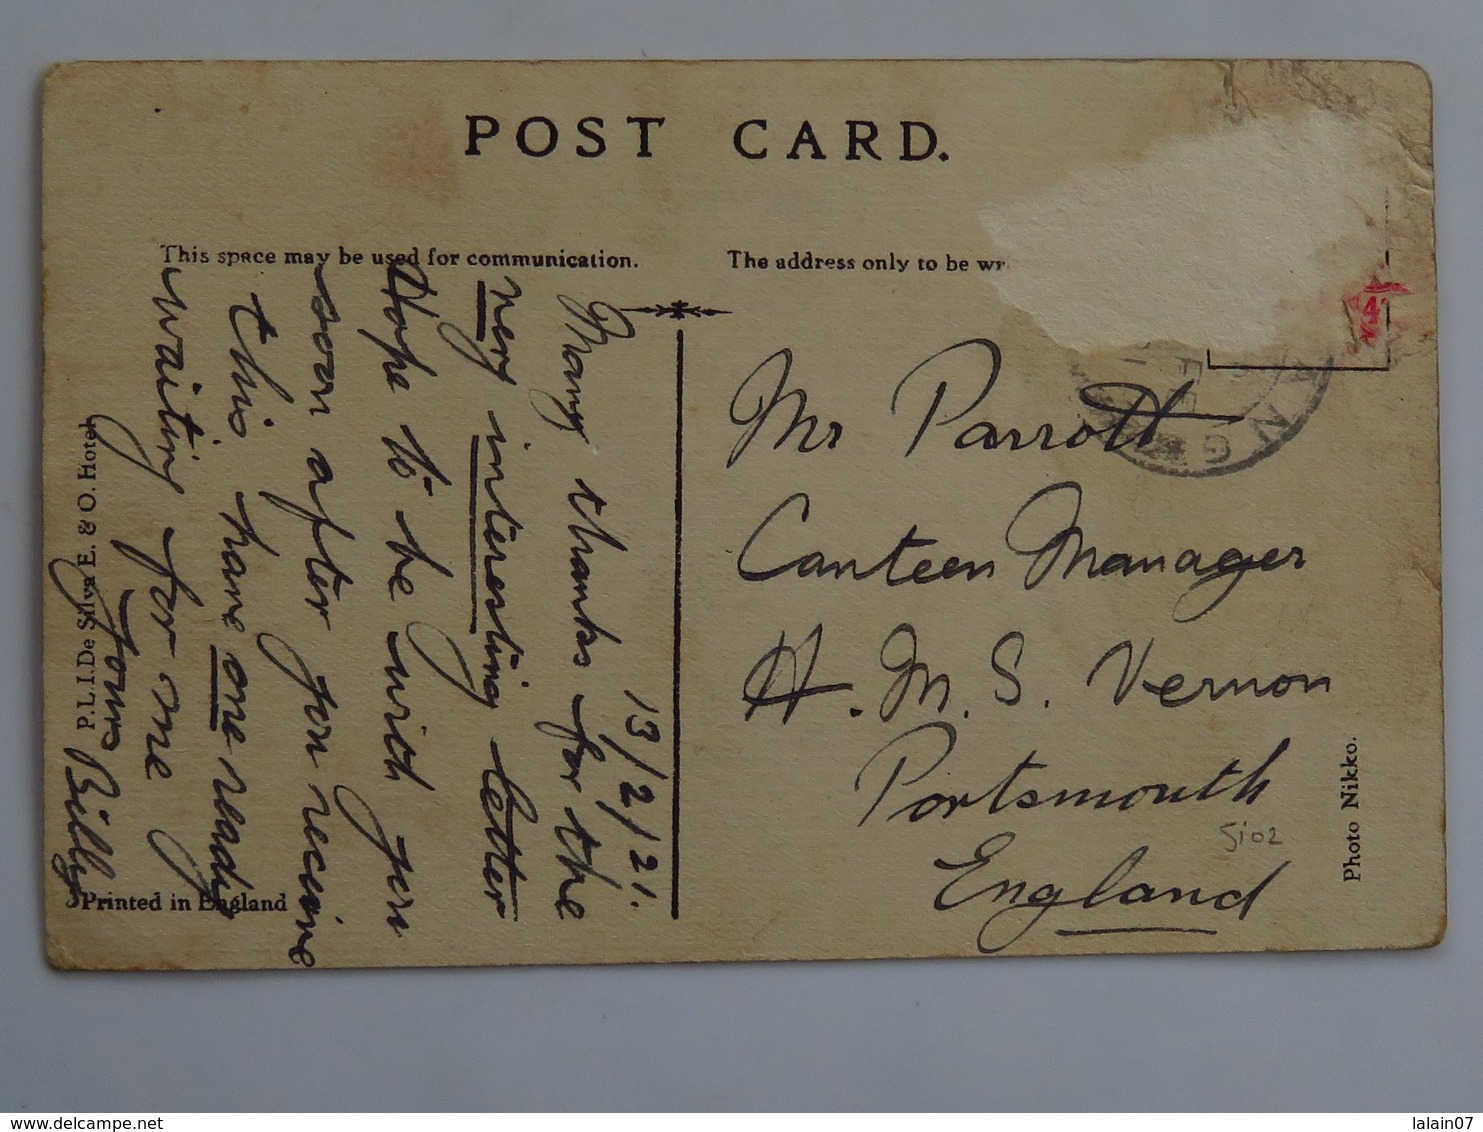 POST CARD.
This space may be used for communication.
The address only to be wr
13/2/21.
Many thanks for the
very interesting letter
Hope to be with you
soon after you receive
this have one ready
waiting for me
Yours
Billy
P.L.I.De Silva E. & O. Hotel
Printed in England
Mr Parrott
Canteen Manager
H. M. S. Vernon
Portsmouth
England
5102
Photo Nikko.
4
N G
delcampe.net
lalain07